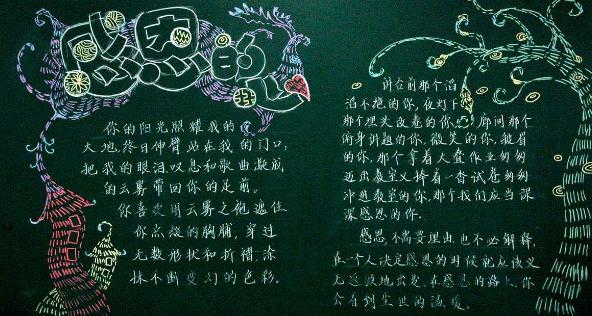 感动
你的阳光照耀我的
大地,终日伸臂站在我的门口,
把我的眼泪,叹息和歌曲凝成
的云雾带回你的足前。
你喜欢用云雾之袍遮住
你点缀的胸脯,穿过
无数形状和折褶,涂
抹不断变幻的色彩。
讲台前那个滔
滔不绝的你,夜灯下
那个埋头改卷的你,廊间那个
俯身讲题的你,微笑的你,皱眉
的你,那个拿着人查作业匆匆
近出教室又捧着一沓试卷匆匆
冲进教室的你,那个我们应当深
深感恩的你。
感恩,不需要理由,也不必解释,
在一个人决定感恩的时候就应该义
无返顾地出发,在感恩的路上,你
会看到尘世的温暖。